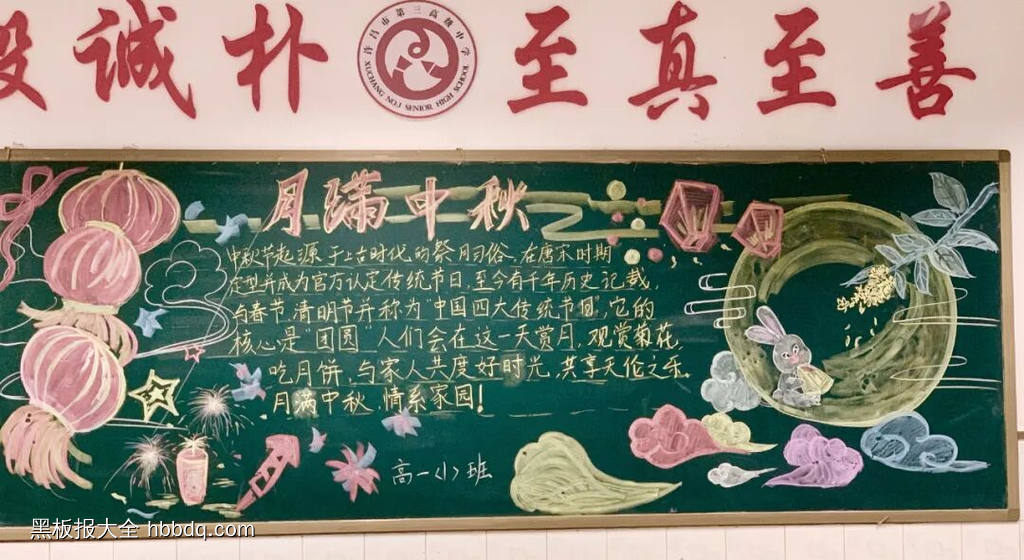 毅 诚 朴
许昌市第三高级中学
XUCHANG NO.3 SENIOR HIGH SCHOOL
至 真 至 善
月满中秋
中秋节起源于上古时代的祭月习俗,在唐宋时期
定型并成为官方认定传统节日,至今有千年历史记载,
与春节、清明节并称为"中国四大传统节日",它的
核心是"团圆"人们会在这一天赏月,观赏菊花,
吃月饼,与家人共度好时光,共享天伦之乐。
月满中秋 情系家园!
高一<小>班
黑板报大全 hbbdq.com